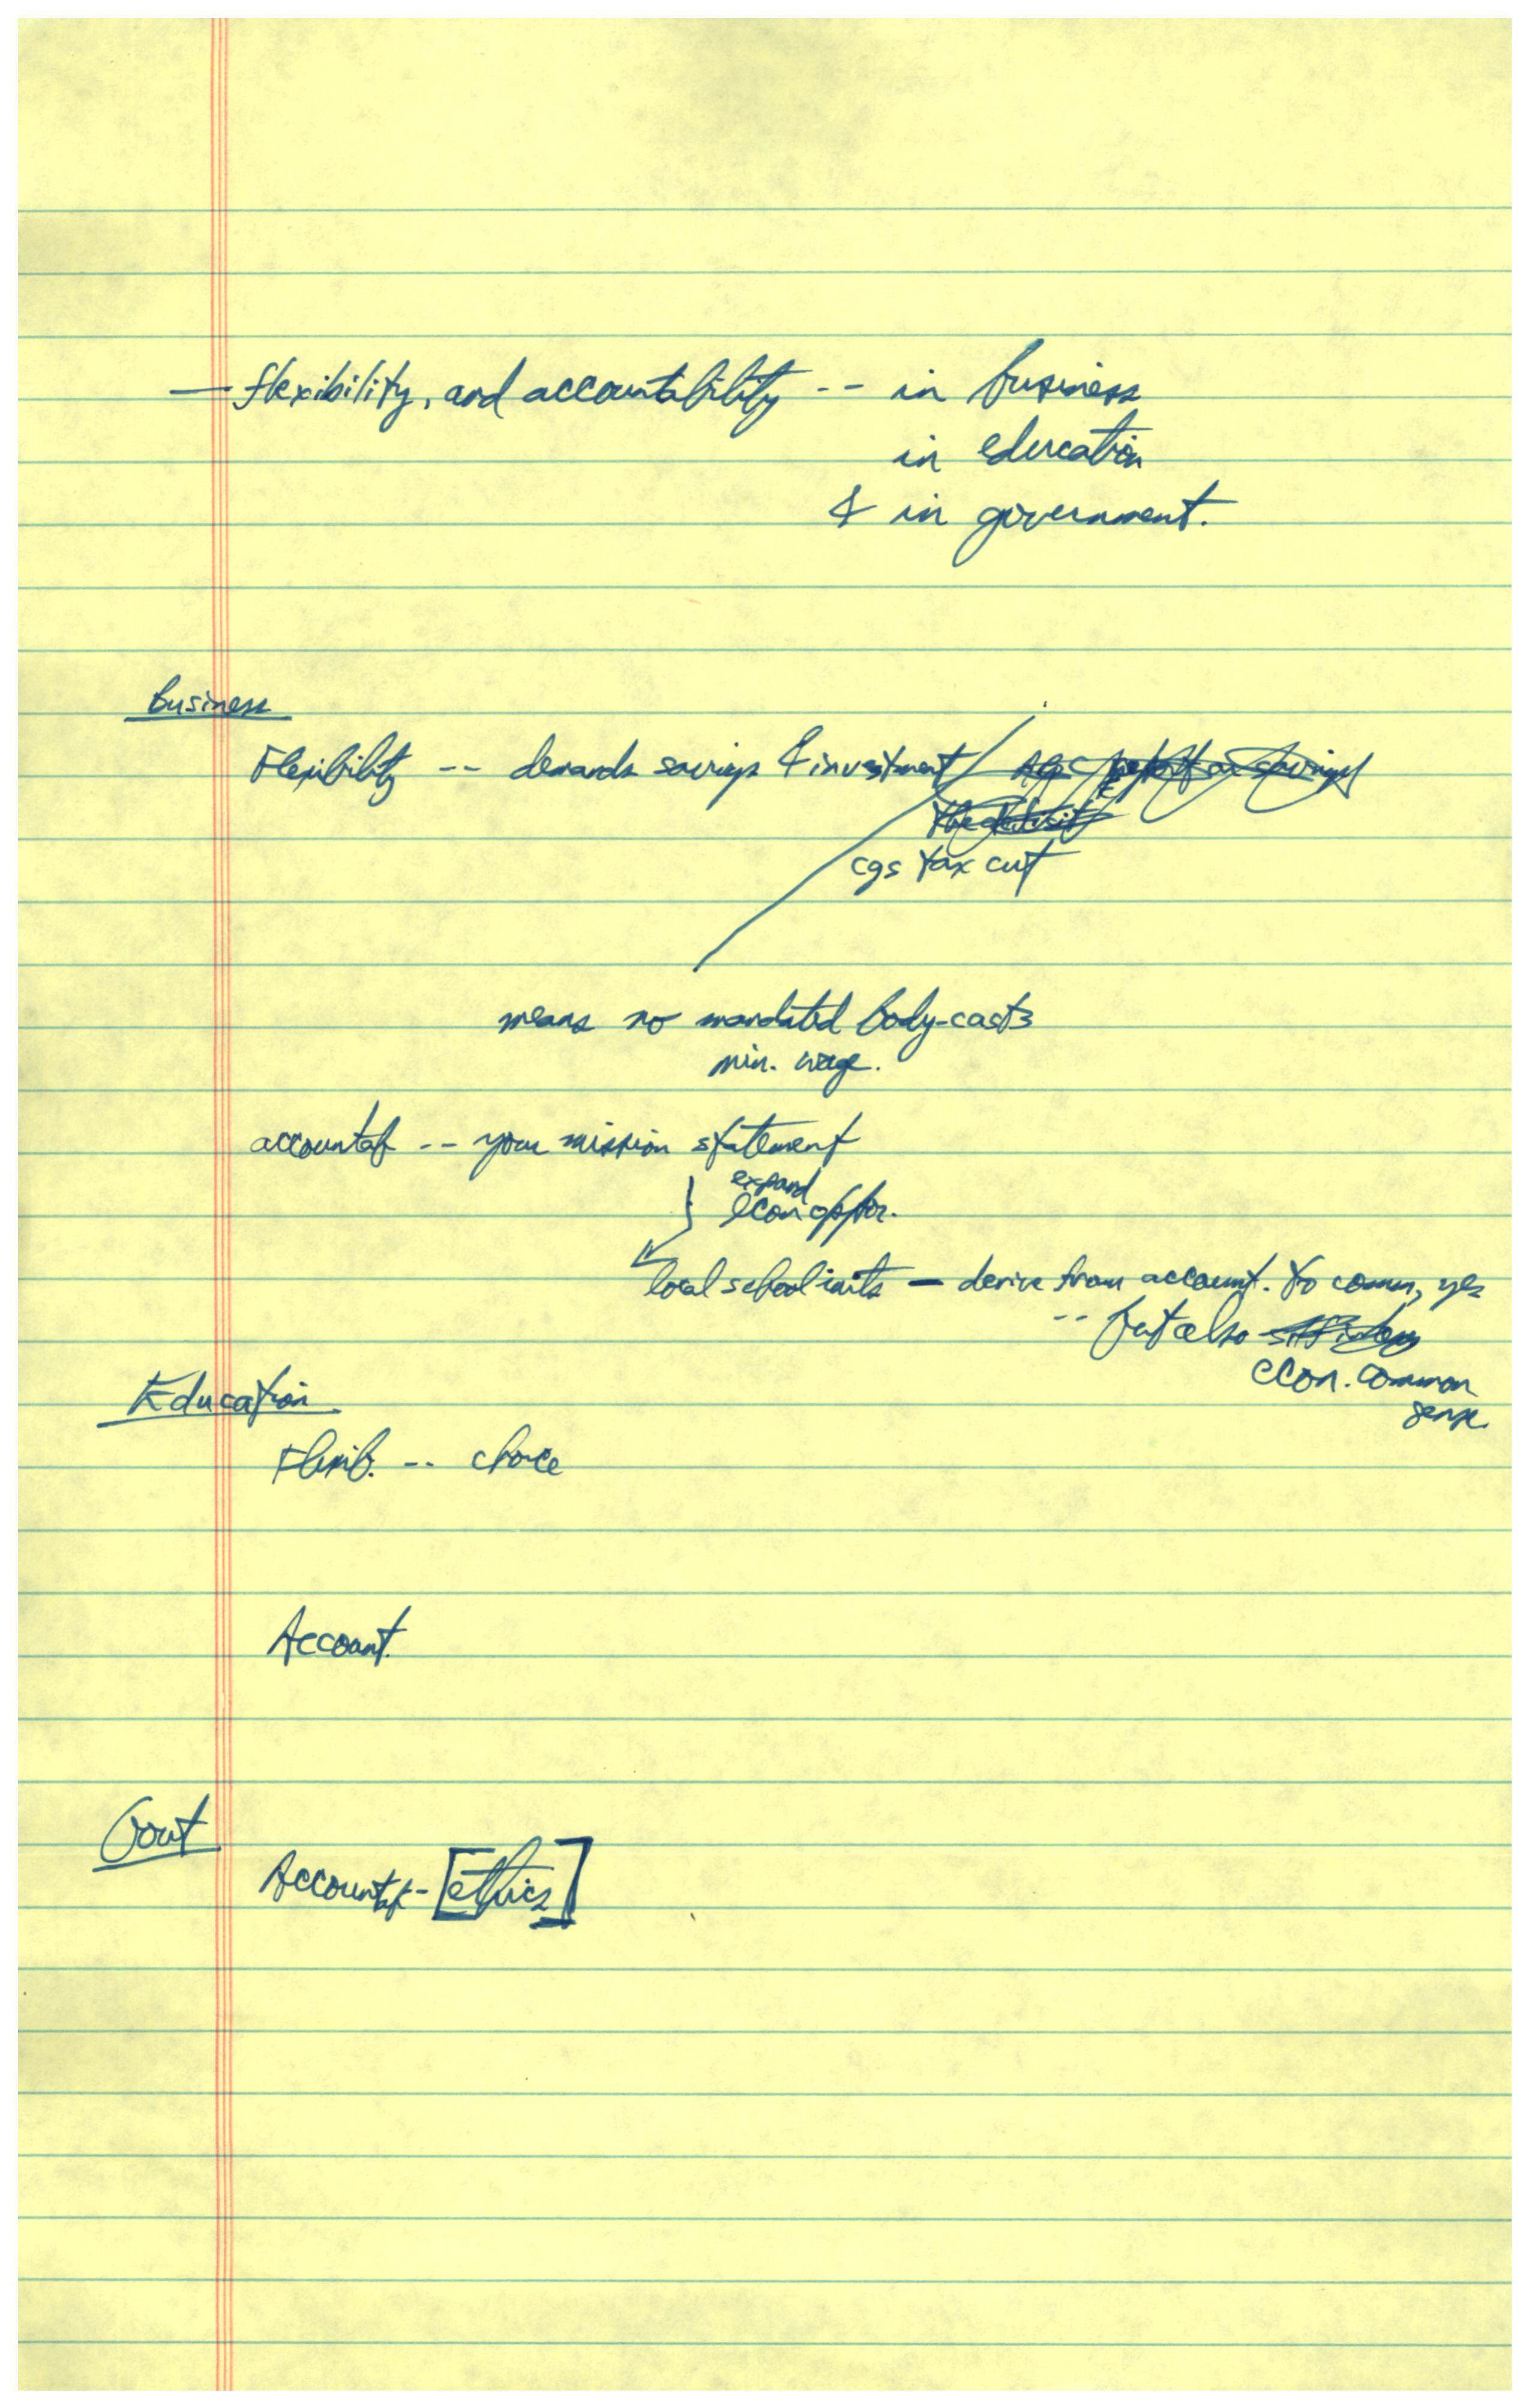 — flexibility, and accountability -- in business
in education
& in government.
business
Flexibility -- demands savings & investment /
cgs tax cut
means no mandated body-casts
min. wage.
accountab -- your mission statement
expand
econ oppor.
local school inits — derive from account. to comm, yes
-- but also
econ. common
sense.
Education
Flexib. -- choice
Account.
Govt
Accountab - [ethics]